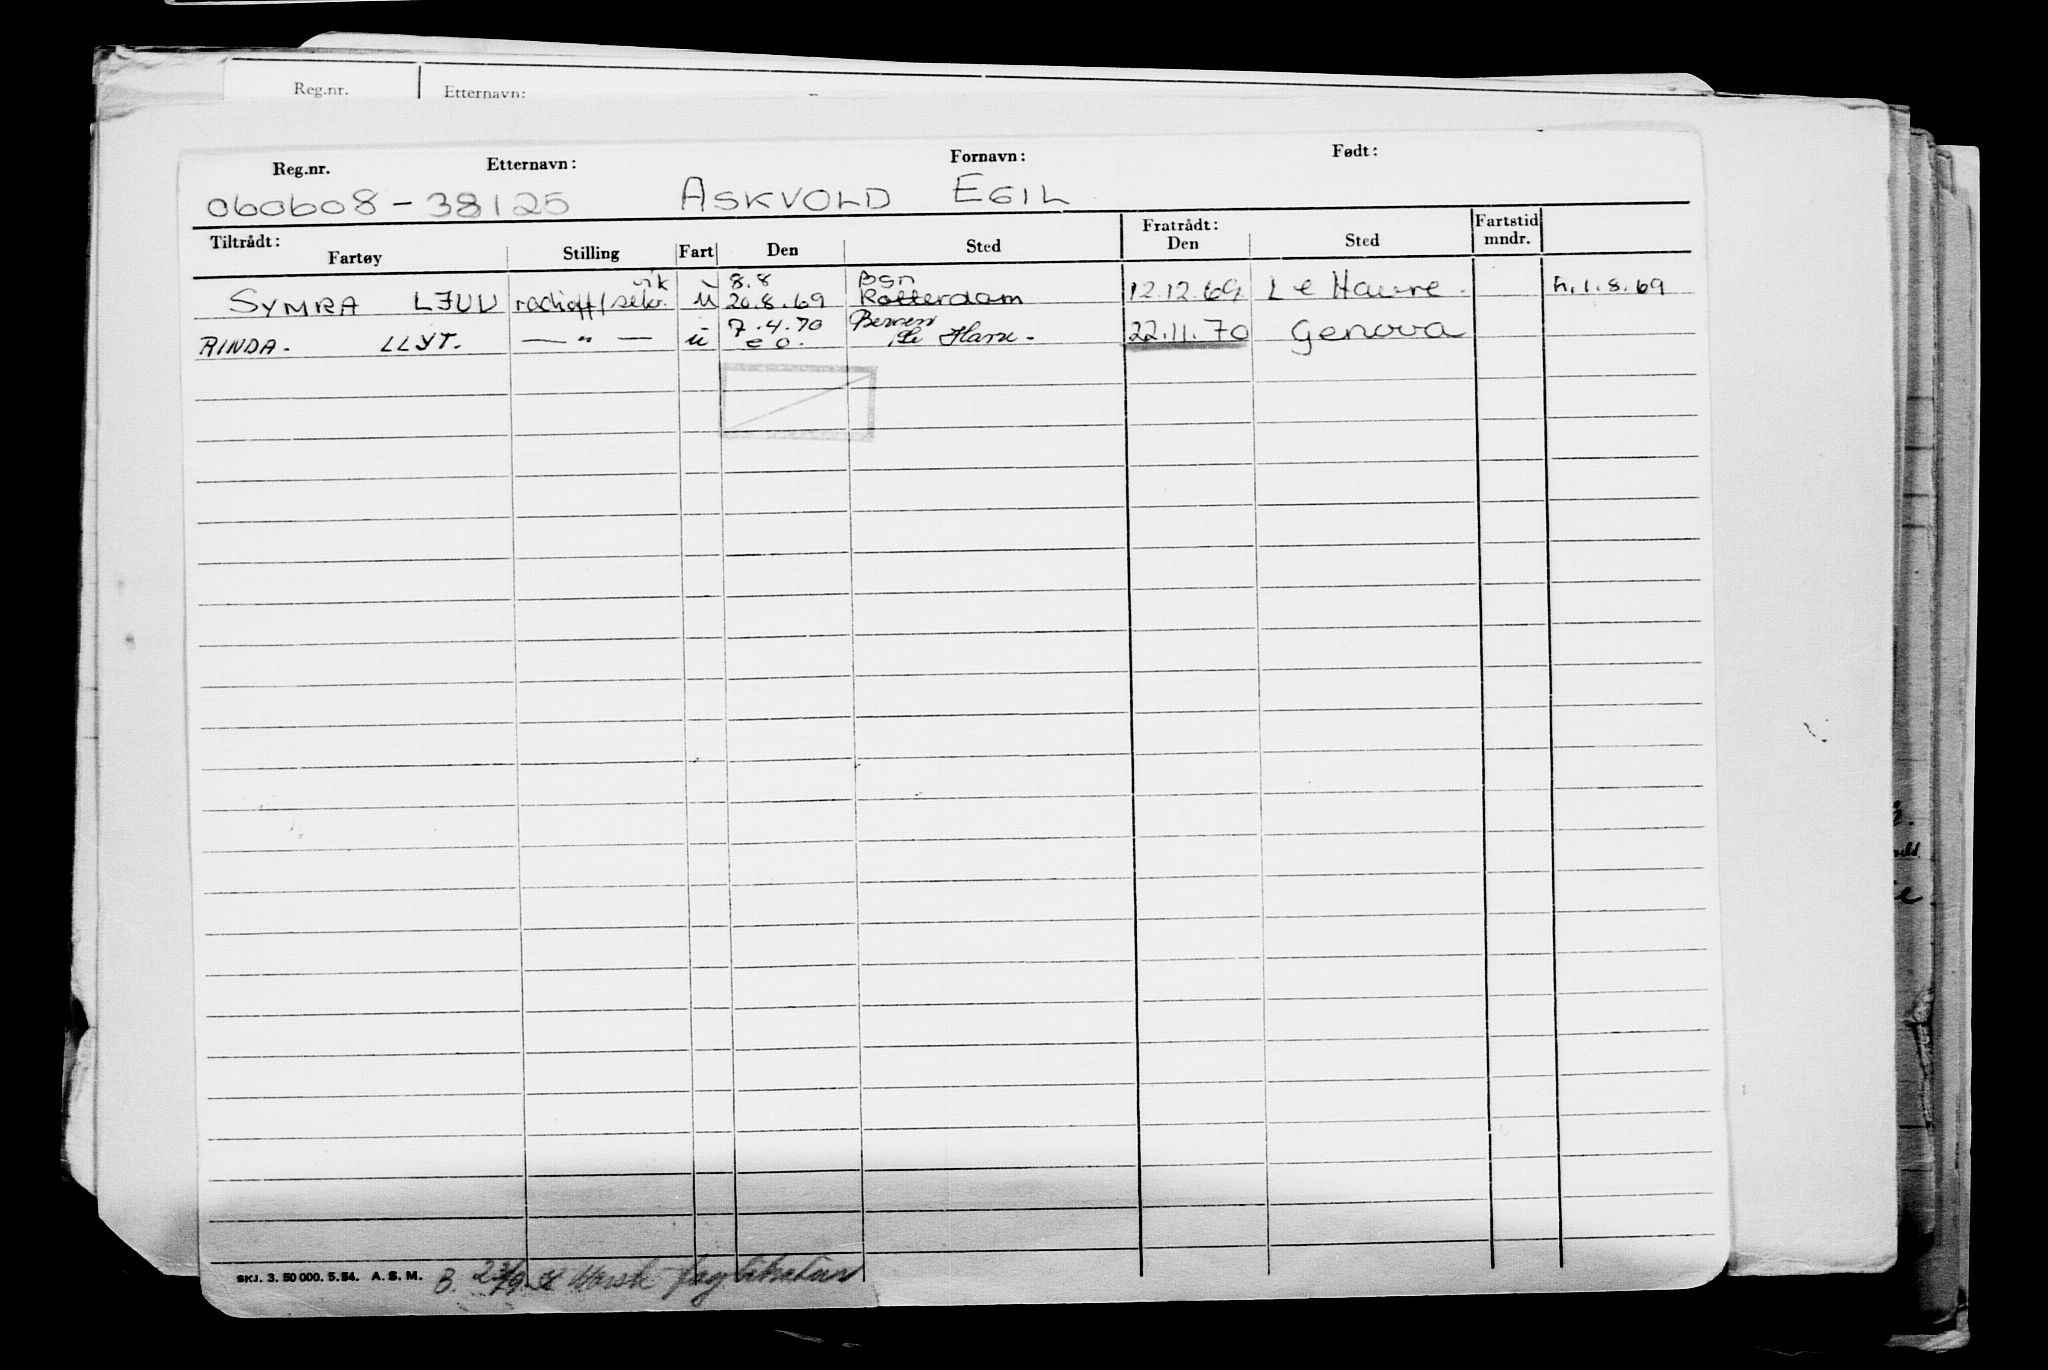 Reg.nr. Etternavn:
Reg.nr. Etternavn: Fornavn: Født:
060608-38125 ASKVOLD EGIL
Tiltrådt: Fratrådt: Fartstid
Fartøy Stilling Fart Den Sted Den Sted mndr.
vik 8.8 Bgn
SYMRA LJUV radioff/sekr. u 20.8.69 Rotterdam 12.12.69 Le Havre. h.1.8.69
7.4.70 Bergen
RINDA. LLYT. — " — u e o. Le Havre. 22.11.70 Genova
SKJ. 3. 50 000. 5.54. A.S.M. B. 23/9 Norsk faglitteratur